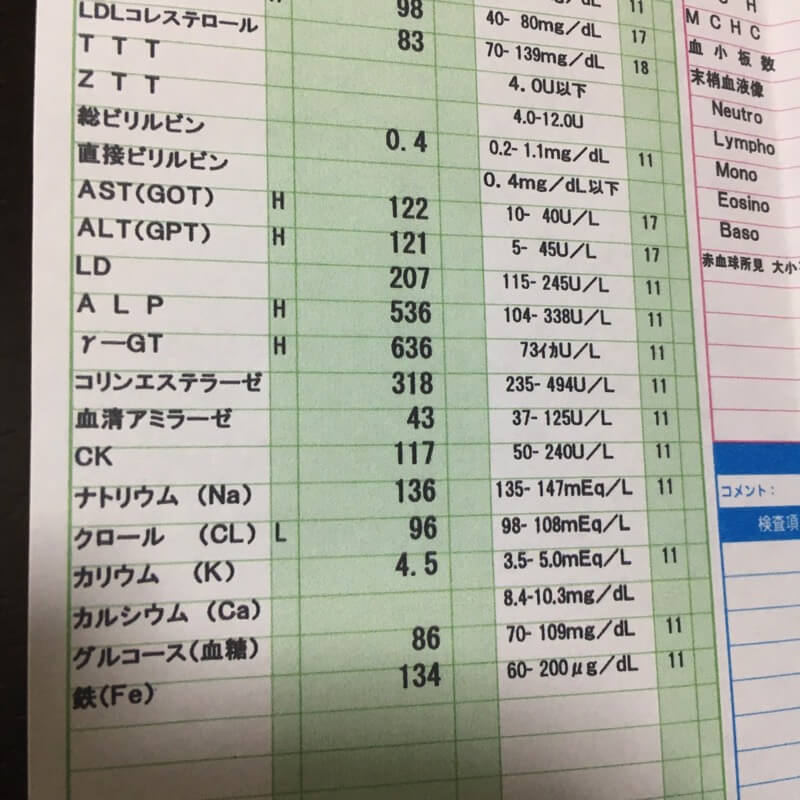 H 98 40- 80mg/dL 11
LDLコレステロール 83 70-139mg/dL 17
TTT 4.0U以下 18
ZTT 4.0-12.0U
総ビリルビン 0.4 0.2- 1.1mg/dL 11
直接ビリルビン 0.4mg/dL以下
AST(GOT) H 122 10- 40U/L 17
ALT(GPT) H 121 5- 45U/L 17
LD 207 115- 245U/L 11
ALP H 536 104- 338U/L 11
γ-GT H 636 73イカU/L 11
コリンエステラーゼ 318 235- 494U/L 11
血清アミラーゼ 43 37- 125U/L 11
CK 117 50- 240U/L 11
ナトリウム (Na) 136 135- 147mEq/L 11
クロール (CL) L 96 98- 108mEq/L
カリウム (K) 4.5 3.5- 5.0mEq/L 11
カルシウム (Ca) 8.4-10.3mg/dL
グルコース(血糖) 86 70- 109mg/dL 11
鉄(Fe) 134 60- 200μg/dL 11
MCHC
血小板数
末梢血液像
Neutro
Lympho
Mono
Eosino
Baso
赤血球所見 大小
コメント:
検査項